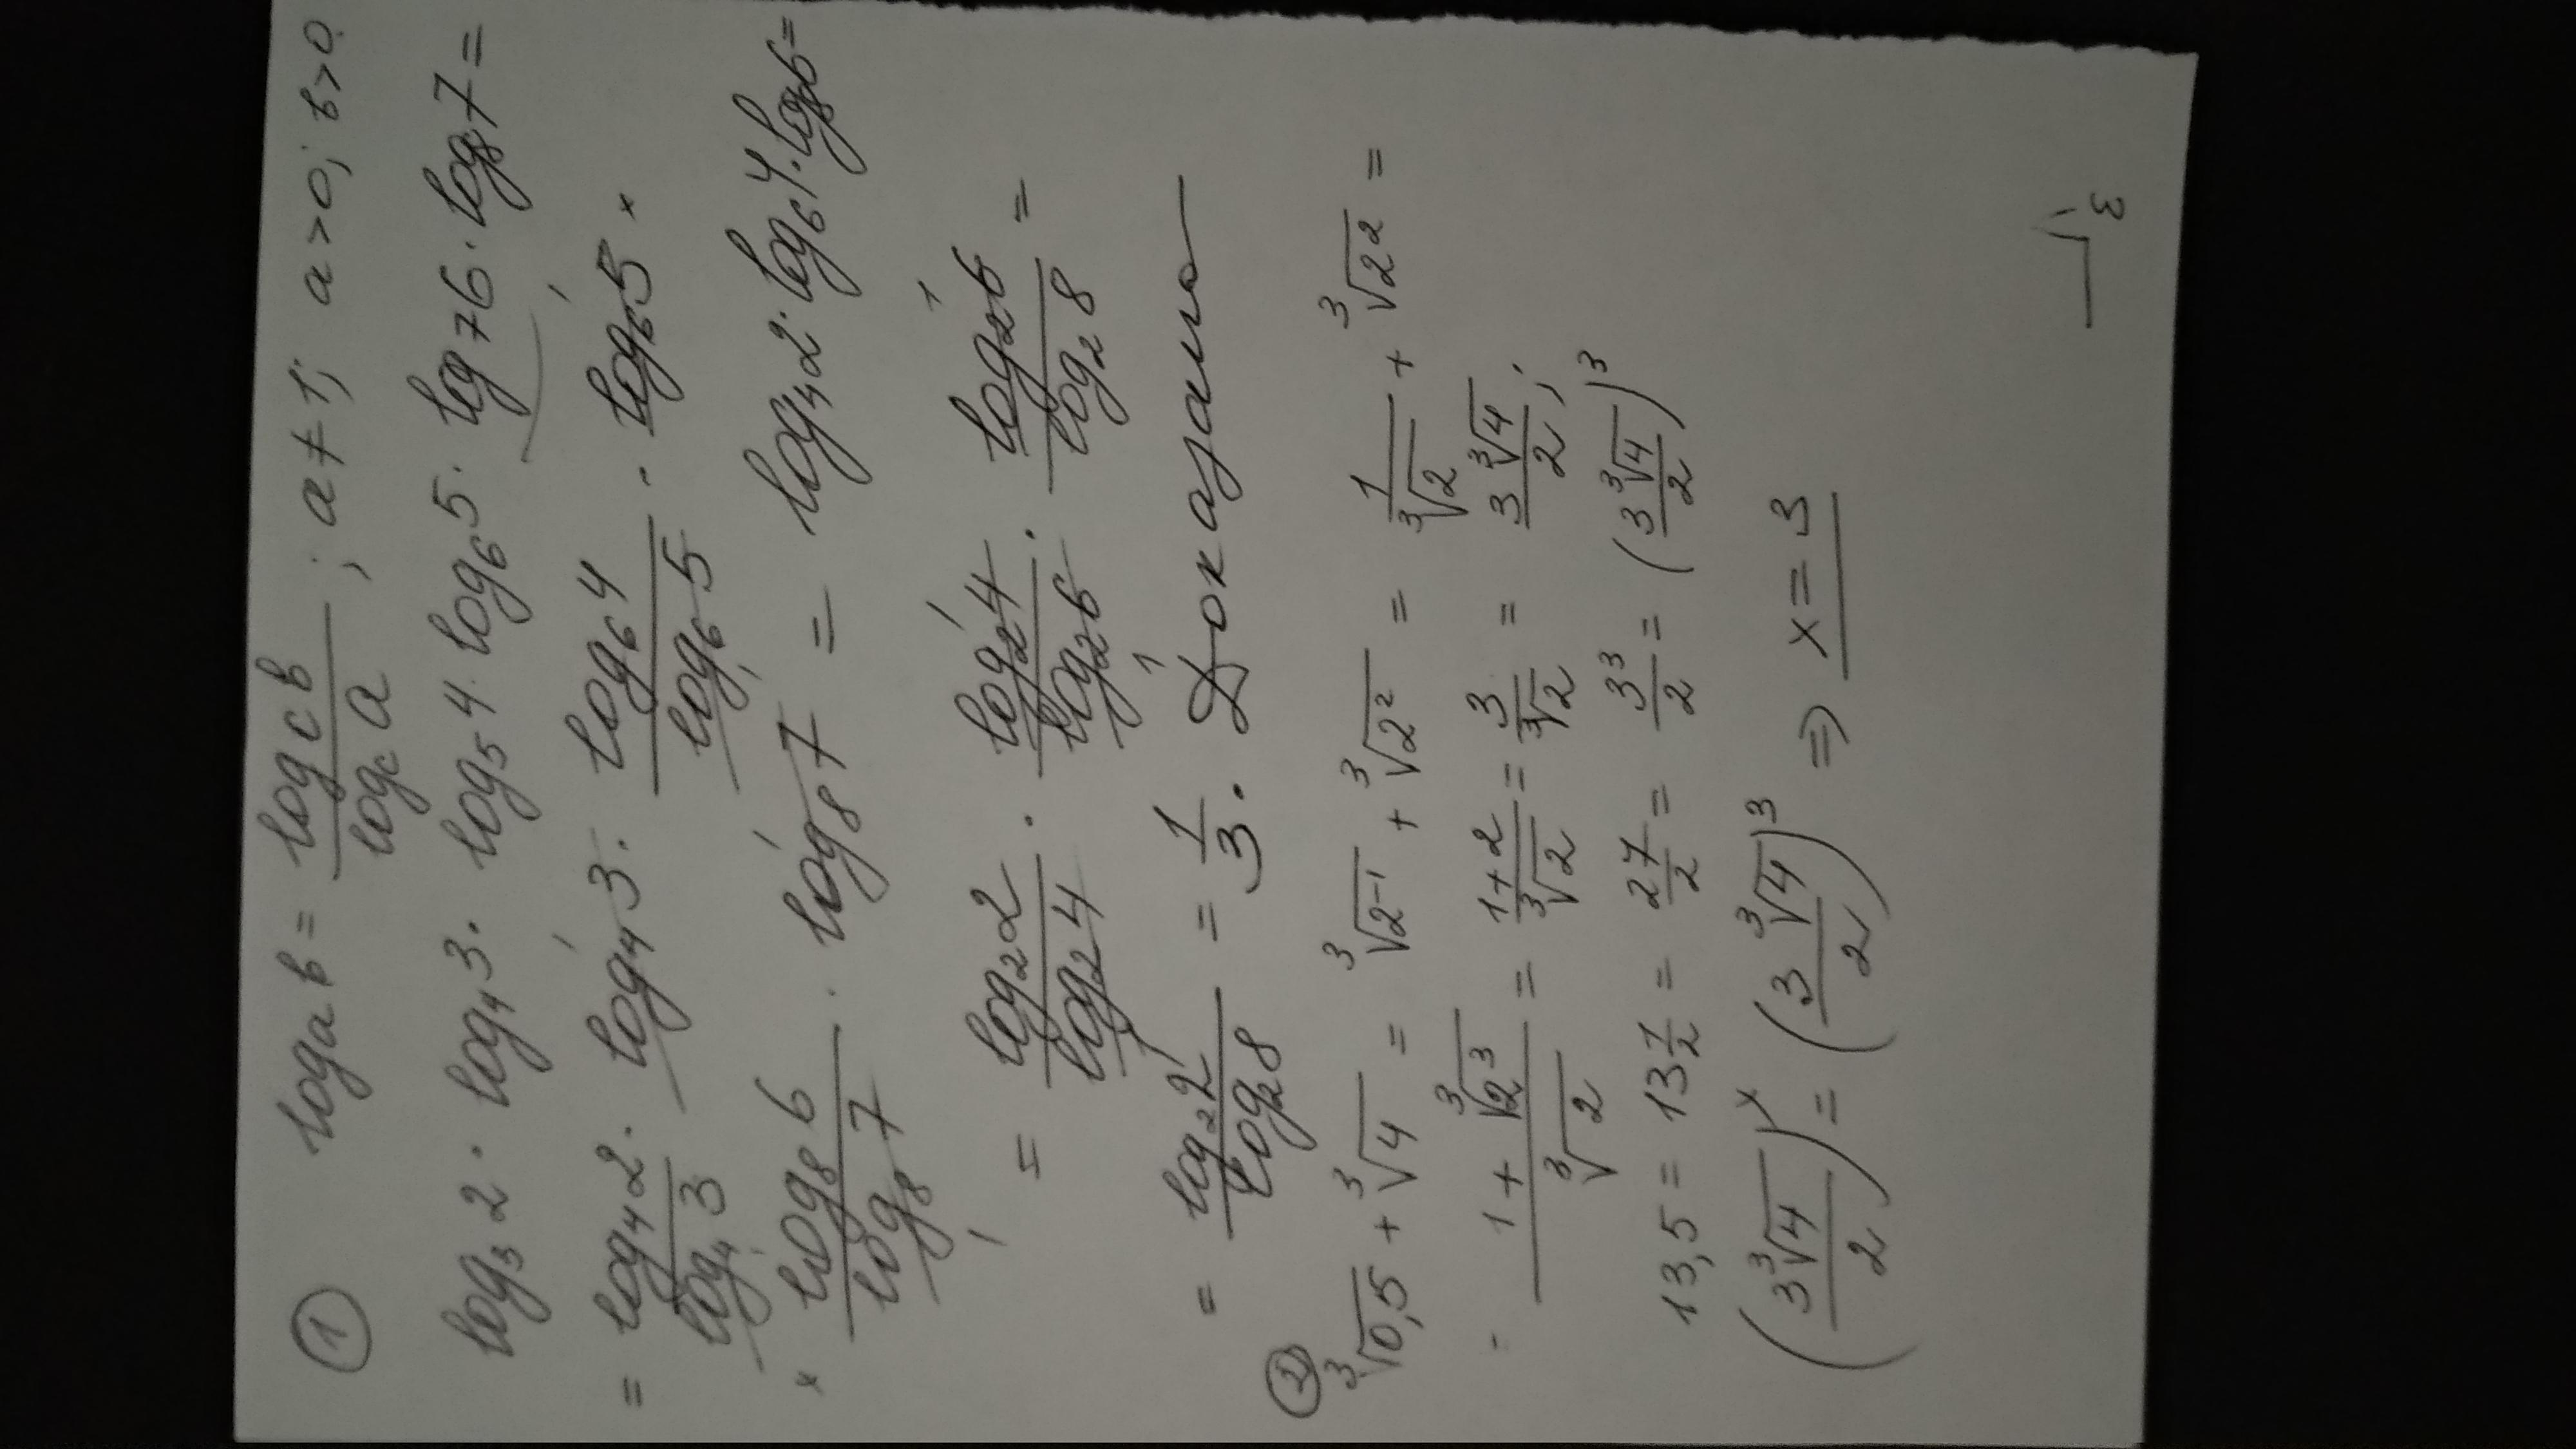 ① log_a b = \frac{log_c b}{log_c a} ; a ≠ 1; a > 0; b > 0
log_3 2 · log_4 3 · log_5 4 · log_6 5 · log_7 6 · log_8 7 =
= \frac{log_4 2}{log_4 3} · log_4 3 · \frac{log_6 4}{log_6 5} · log_6 5 ×
× \frac{log_8 6}{log_8 7} · log_8 7 = log_4 2 · log_6 4 · log_8 6 =
= \frac{log_2 2}{log_2 4} · \frac{log_2 4}{log_2 6} · \frac{log_2 6}{log_2 8} =
= \frac{log_2 2}{log_2 8} = \frac{1}{3}. Доказано
② ∛0,5 + ∛4 = ∛2⁻¹ + ∛2² = \frac{1}{∛2} + ∛2² =
= \frac{1 + ∛2³}{∛2} = \frac{1+2}{∛2} = \frac{3}{∛2} = \frac{3∛4}{2};
13,5 = 13\frac{1}{2} = \frac{27}{2} = \frac{3³}{2} = (\frac{3∛4}{2})³
(\frac{3∛4}{2})ˣ = (\frac{3∛4}{2})³ ⇒ x = 3